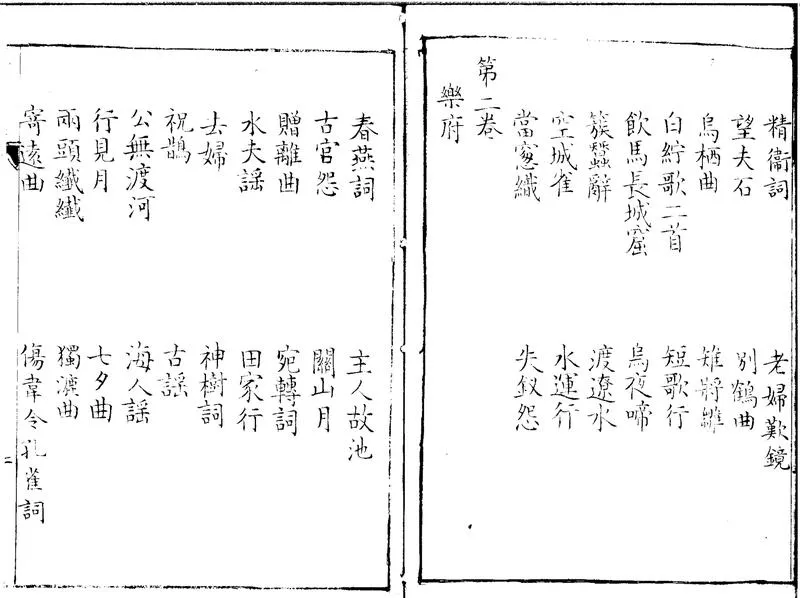 精衞詞　老婦歎鏡
望夫石　別鶴曲
烏栖曲　雉將雛
白紵歌二首　短歌行
飲馬長城窟　烏夜啼
簇蠶辭　渡遼水
空城雀　水運行
當窻織　失釵怨
第二卷
樂府
春燕詞　主人故池
古官怨　關山月
贈離曲　宛轉詞
水夫謠　田家行
去婦　神樹詞
祝鵲　古謠
公無渡河　海人謠
行見月　七夕曲
兩頭纖纖　獨漉曲
寄遠曲　傷韋令孔雀詞
二